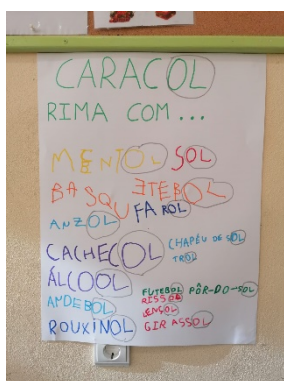 CARACOL
RIMA COM...
MENTOL SOL
BASQUETEBOL
ANZOL FAROL
CACHECOL CHAPÉU DE SOL
TROL
ÁLCOOL
FUTEBOL PÔR-DO-SOL
ANDEBOL RISSOL
LENÇOL
ROUXINOL GIRASSOL